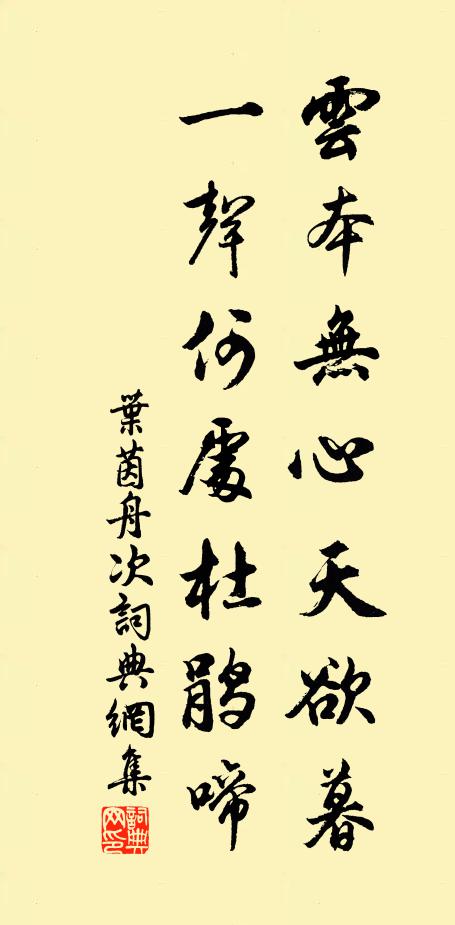 雲本無心天欲暮
一聲何處杜鵑啼
葉茵舟次詞典網集
詞典網印